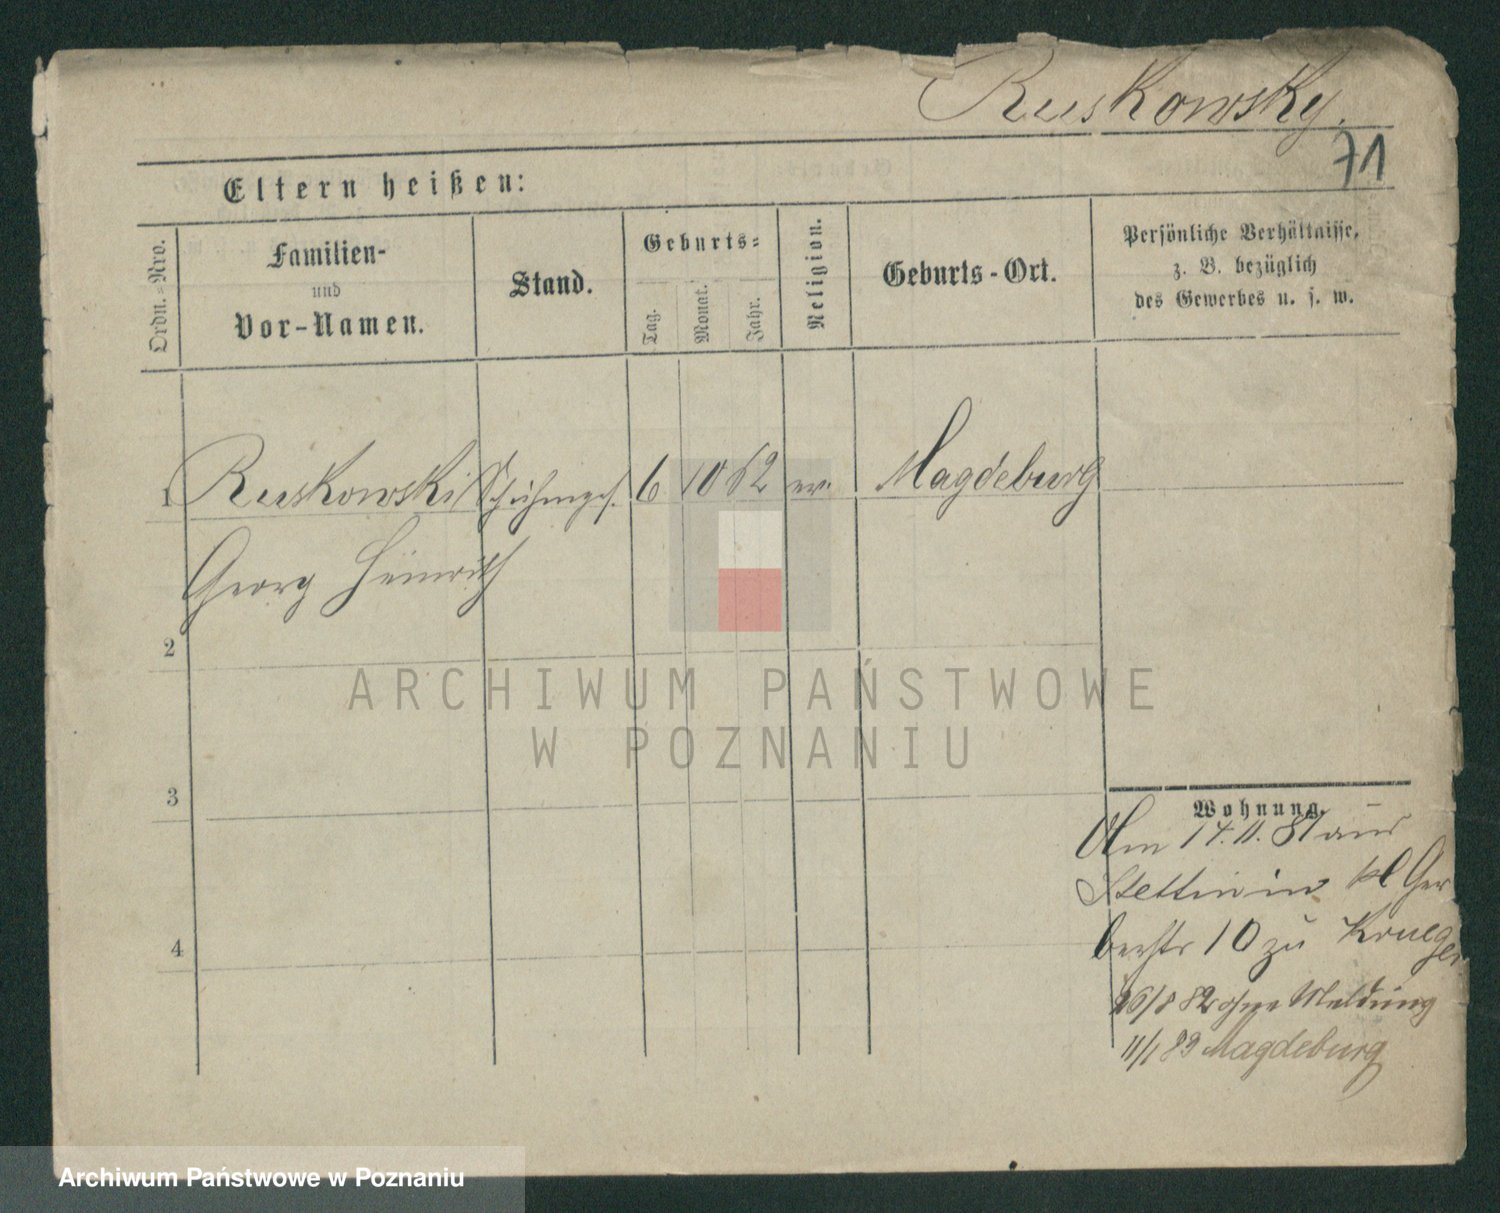 Ruskowsky.
71
Eltern heißen:
Ordn.=Nro.
Familien-
und
Vor-Namen.
Stand.
Geburts=
Tag.
Monat.
Jahr.
Religion.
Geburts-Ort.
Persönliche Verhältnisse,
z. B. bezüglich
des Gewerbes u. s. w.
1 Ruskowski Schuhmges. 6 10 62 ev. Magdeburg
Georg Heinrich
2
3
4
Wohnung.
Am 14.11.81 aus
Stettin in kl Ger
berstr 10 zu Krueger
26/8 82 ohne Meldung
11/1 83 Magdeburg
ARCHIWUM PAŃSTWOWE
W POZNANIU
Archiwum Państwowe w Poznaniu